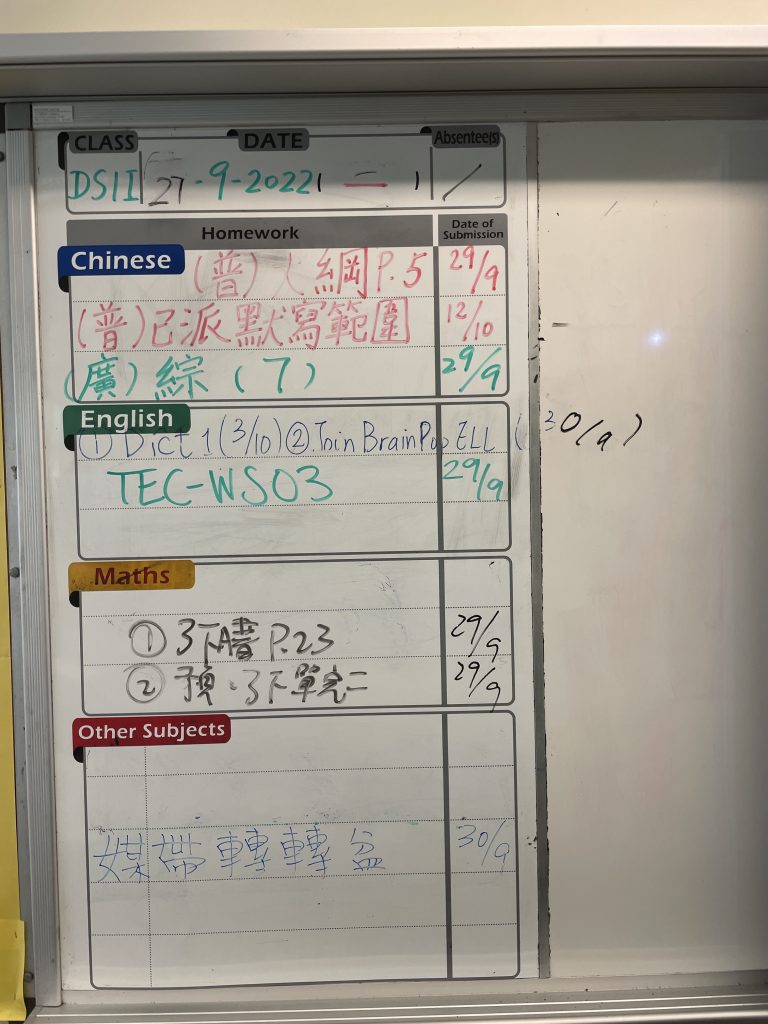 CLASS DATE Absentee(s)
DS1I 27-9-2022 二 /
Homework Date of Submission
Chinese
(普) 人綱 P.5 29/9
(普) 已派默寫範圍 12/10
(廣) 綜 (7) 29/9
English
① Dict 1 (3/10) ② Join BrainPop ELL (30/9)
TEC-WS03 29/9
Maths
① 3下A書 P.23 29/9
② 預．3下單元二 29/9
Other Subjects
媒 帶 轉 轉 盆 30/9